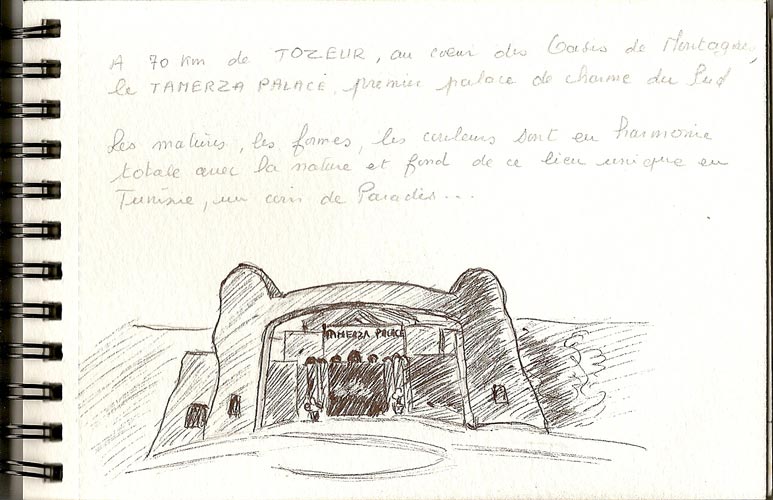 A 70 Km de TOZEUR, au cœur des Oasis de Montagne,
le TAMERZA PALACE, premier palace de charme du Sud
Les matières, les formes, les couleurs sont en harmonie
totale avec la nature et font de ce lieu unique en
Tunisie, un coin de Paradis...
TAMERZA PALACE